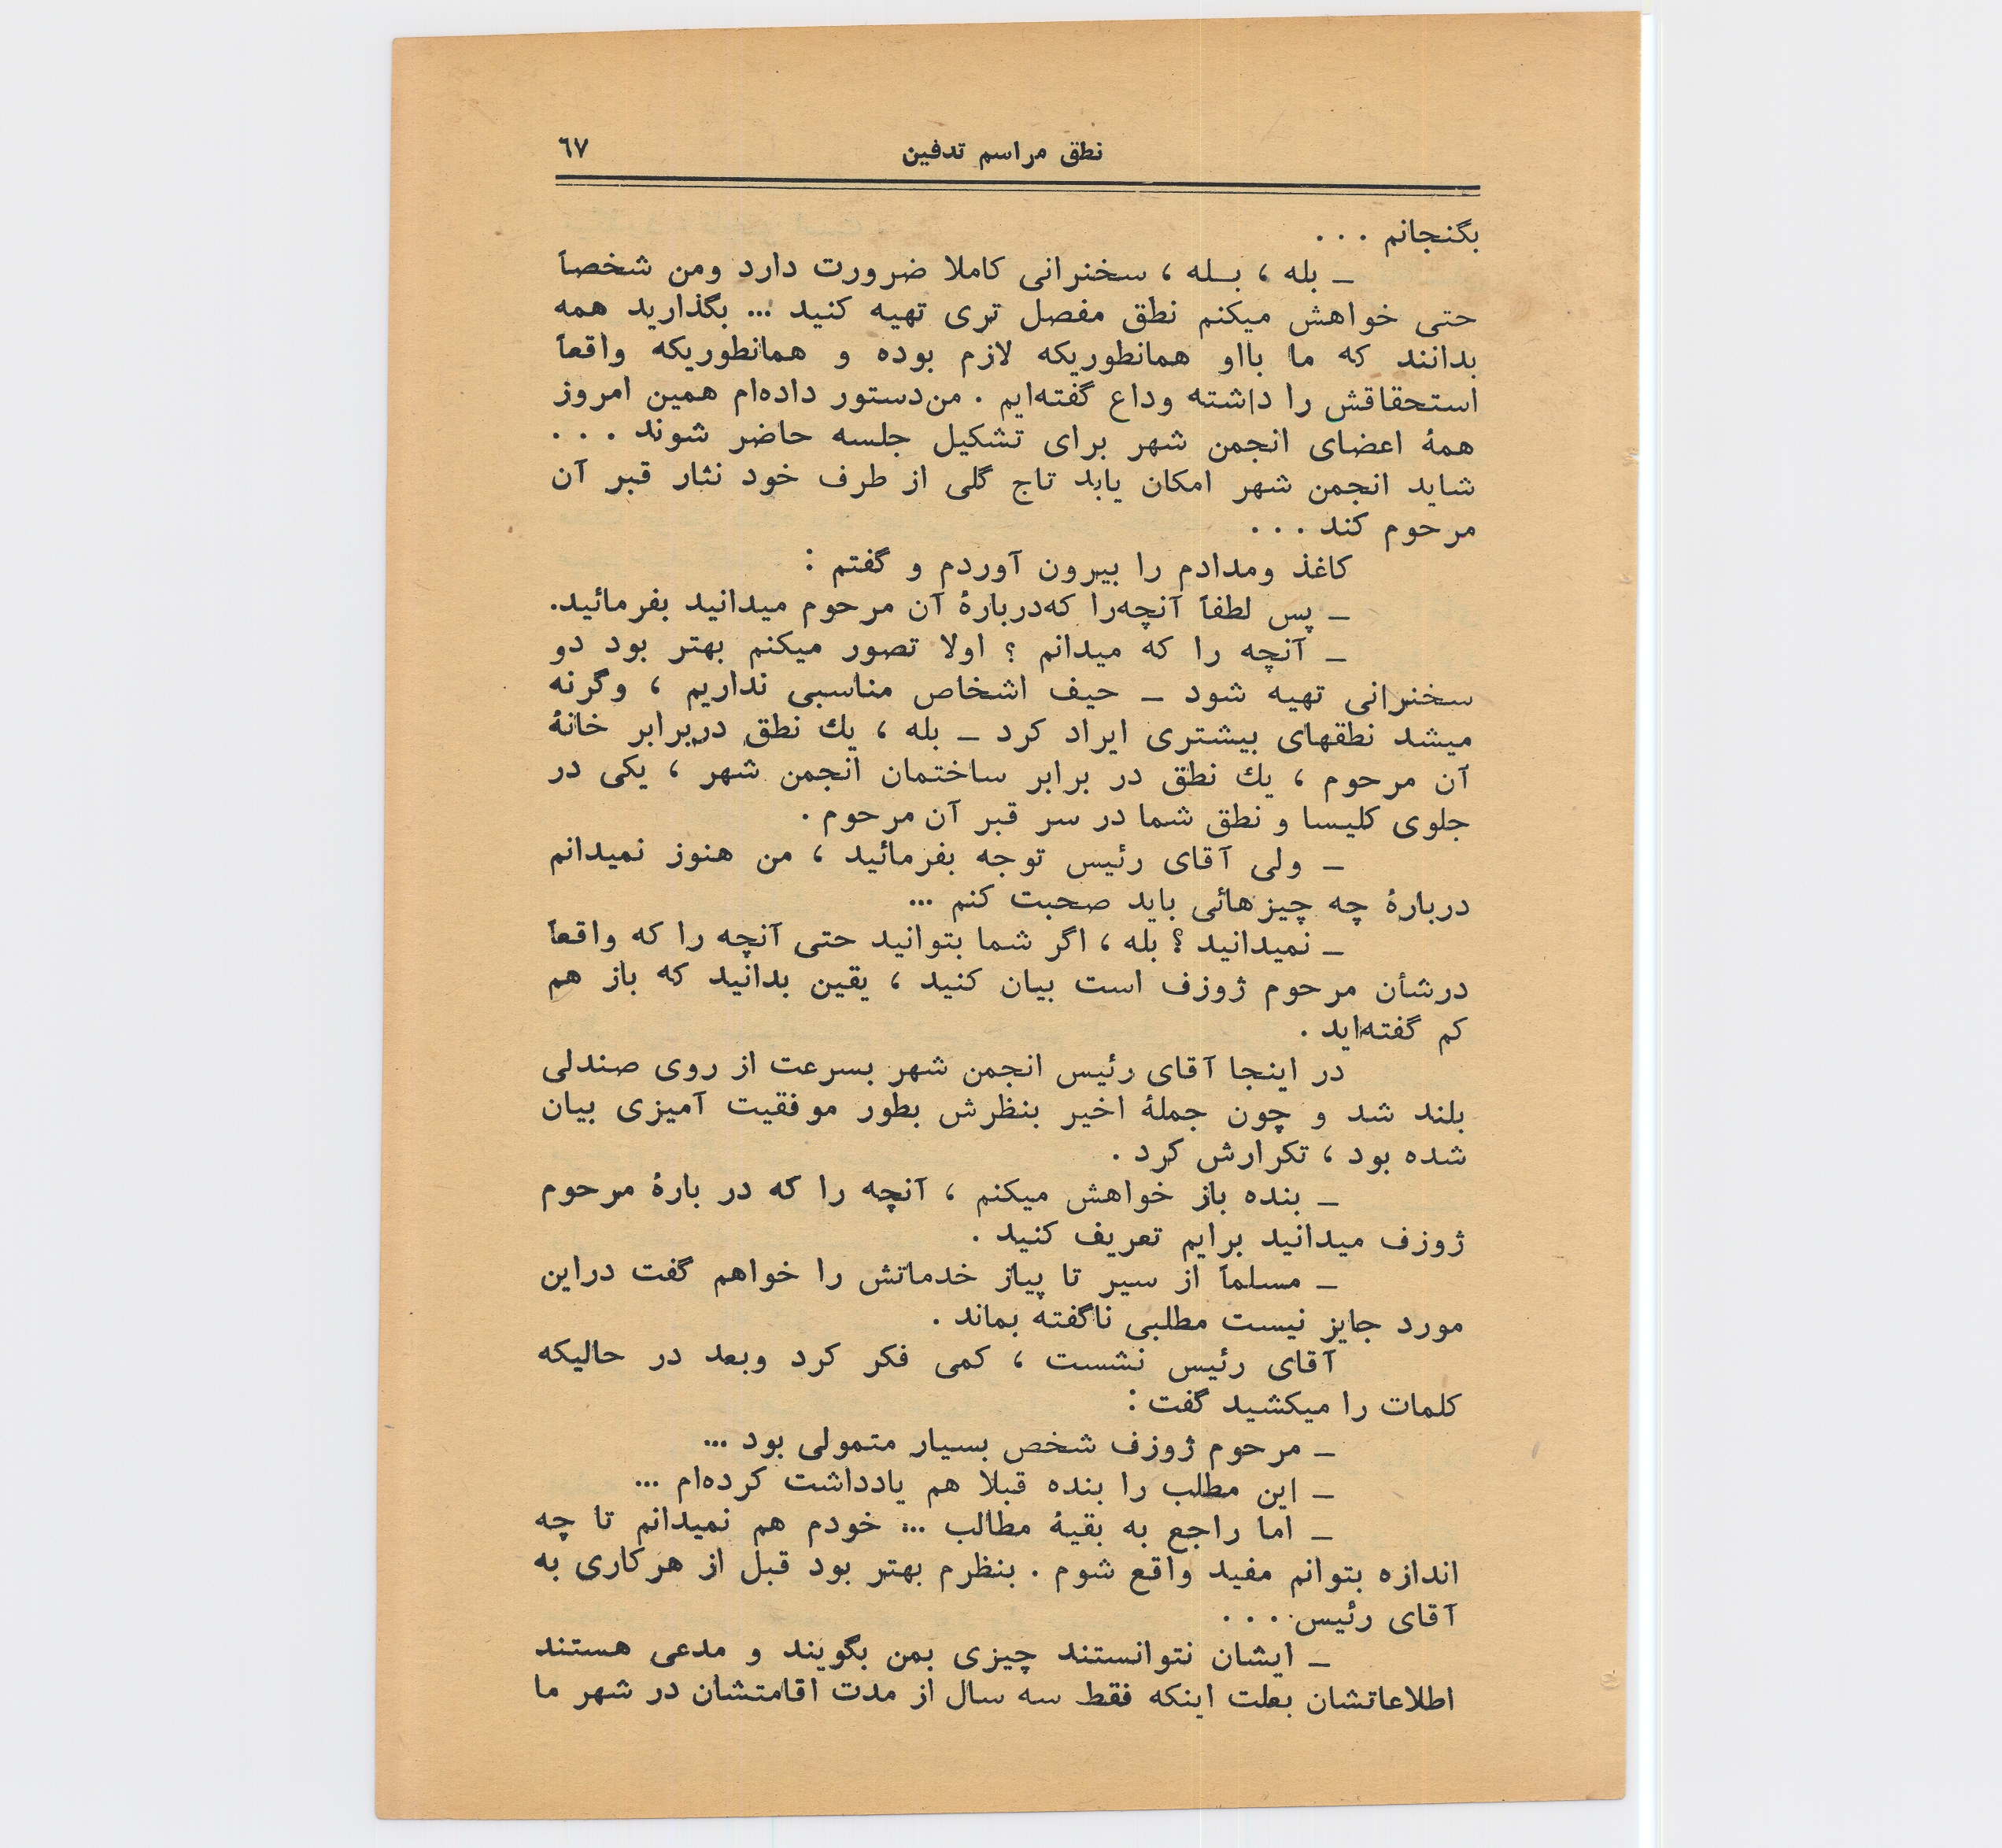 نطق مراسم تدفین ٦٧
بگنجانم . . .
ـ بله ، بـــله ، سخنرانی کاملا ضرورت دارد ومن شخصاً
حتی خواهش میکنم نطق مفصل تری تهیه کنید ... بگذارید همه
بدانند که ما بااو همانطوریکه لازم بوده و همانطوریکه واقعاً
استحقاقش را داشته وداع گفته‌ایم . من‌دستور داده‌ام همین امروز
همهٔ اعضای انجمن شهر برای تشکیل جلسه حاضر شوند . . .
شاید انجمن شهر امکان یابد تاج گلی از طرف خود نثار قبر آن
مرحوم کند . . .
کاغذ ومدادم را بیرون آوردم و گفتم :
ـ پس لطفاً آنچه‌را که‌دربارهٔ آن مرحوم میدانید بفرمائید.
ـ آنچه را که میدانم ؟ اولا تصور میکنم بهتر بود دو
سخنرانی تهیه شود ـ حیف اشخاص مناسبی نداریم ، وگرنه
میشد نطقهای بیشتری ایراد کرد ـ بله ، یك نطق دربرابر خانهٔ
آن مرحوم ، یك نطق در برابر ساختمان انجمن شهر ، یکی در
جلوی کلیسا و نطق شما در سر قبر آن مرحوم .
ـ ولی آقای رئیس توجه بفرمائید ، من هنوز نمیدانم
دربارهٔ چه چیزهائی باید صحبت کنم ...
ـ نمیدانید ؟ بله ، اگر شما بتوانید حتی آنچه را که واقعاً
درشأن مرحوم ژوزف است بیان کنید ، یقین بدانید که باز هم
کم گفته‌اید .
در اینجا آقای رئیس انجمن شهر بسرعت از روی صندلی
بلند شد و چون جملهٔ اخیر بنظرش بطور موفقیت آمیزی بیان
شده بود ، تکرارش کرد .
ـ بنده باز خواهش میکنم ، آنچه را که در بارهٔ مرحوم
ژوزف میدانید برایم تعریف کنید .
ـ مسلماً از سیر تا پیاز خدماتش را خواهم گفت دراین
مورد جایز نیست مطلبی ناگفته بماند .
آقای رئیس نشست ، کمی فکر کرد وبعد در حالیکه
کلمات را میکشید گفت :
ـ مرحوم ژوزف شخص بسیار متمولی بود ...
ـ این مطلب را بنده قبلا هم یادداشت کرده‌ام ...
ـ اما راجع به بقیهٔ مطالب ... خودم هم نمیدانم تا چه
اندازه بتوانم مفید واقع شوم . بنظرم بهتر بود قبل از هرکاری به
آقای رئیس . . . .
ـ ایشان نتوانستند چیزی بمن بگویند و مدعی هستند
اطلاعاتشان بعلت اینکه فقط سه سال از مدت اقامتشان در شهر ما